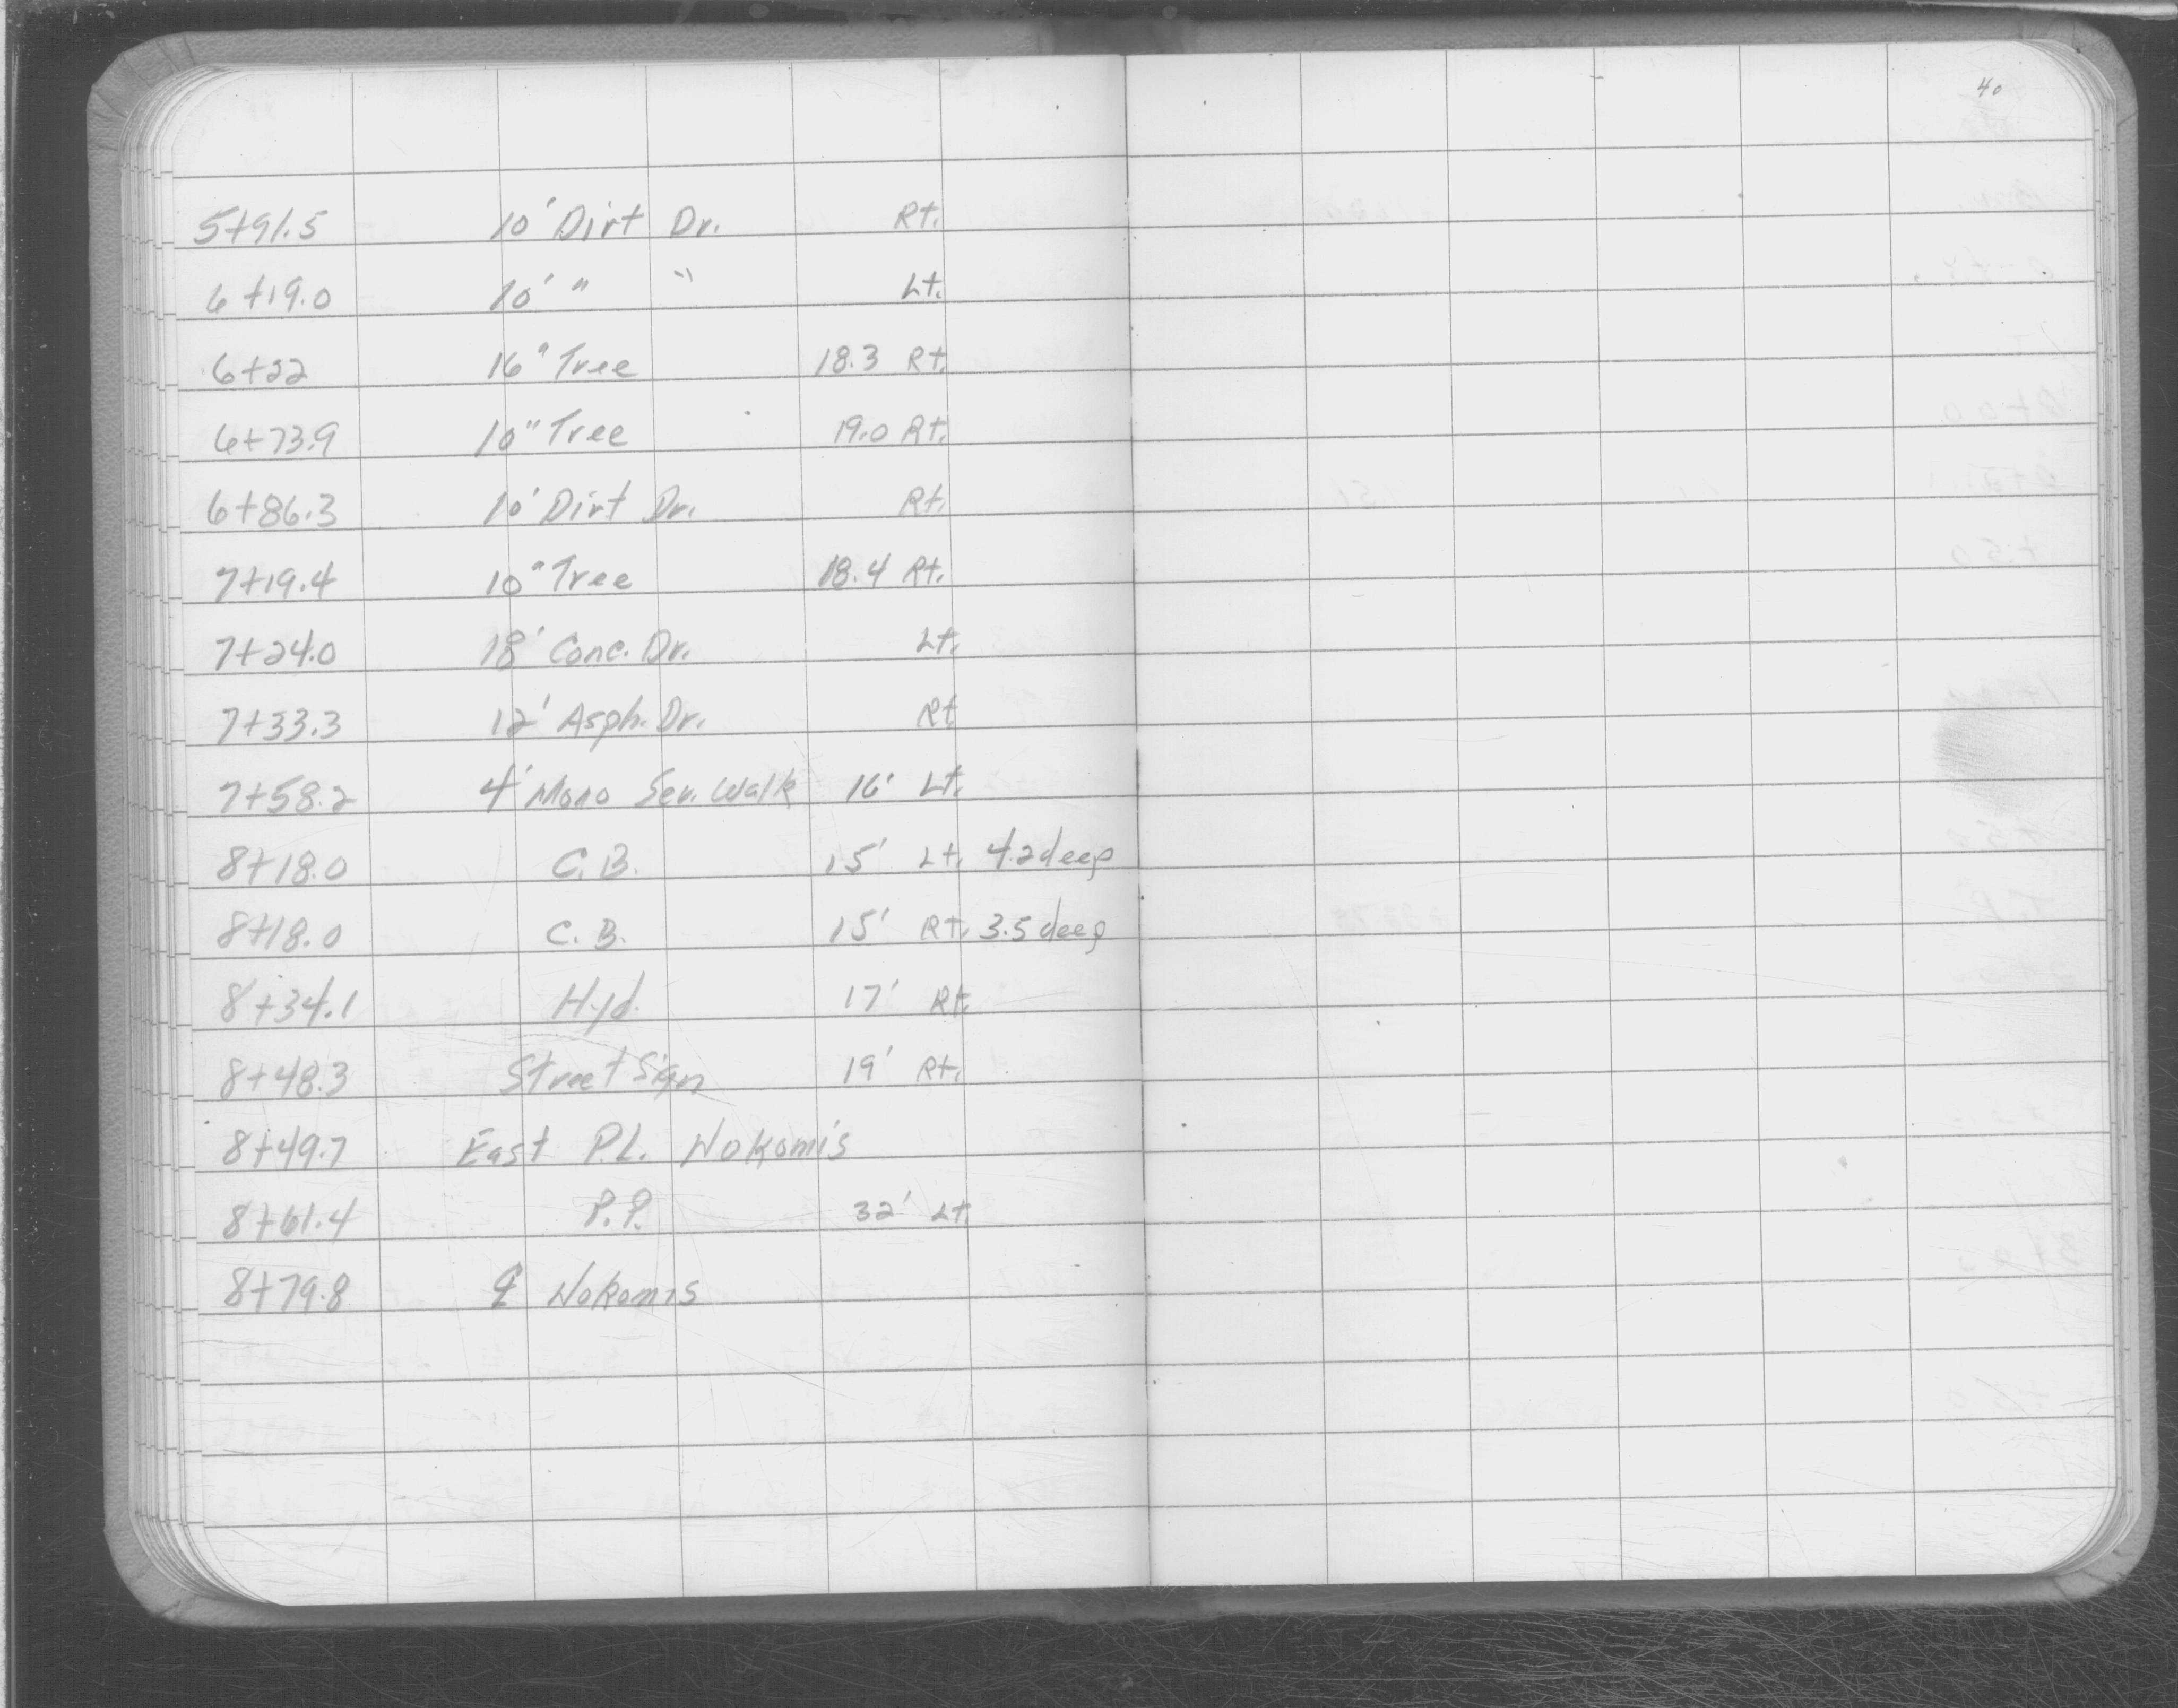 40
5+91.5 10' Dirt Dr. Rt.
6+19.0 10' " " Lt.
6+22 16" Tree 18.3 Rt.
6+73.9 10" Tree 19.0 Rt.
6+86.3 10' Dirt Dr. Rt.
7+19.4 10" Tree 18.4 Rt.
7+24.0 18' Conc. Dr. Lt.
7+33.3 12' Asph. Dr. Rt
7+58.2 4' Mono Ser. Walk 16' Lt.
8+18.0 C.B. 15' Lt. 4.2 deep
8+18.0 C.B. 15' Rt. 3.5 deep
8+34.1 Hyd. 17' Rt.
8+48.3 Street Sign 19' Rt.
8+49.7 East P.L. Nokomis
8+61.4 P.P. 32' Lt.
8+79.8 ℄ Nokomis